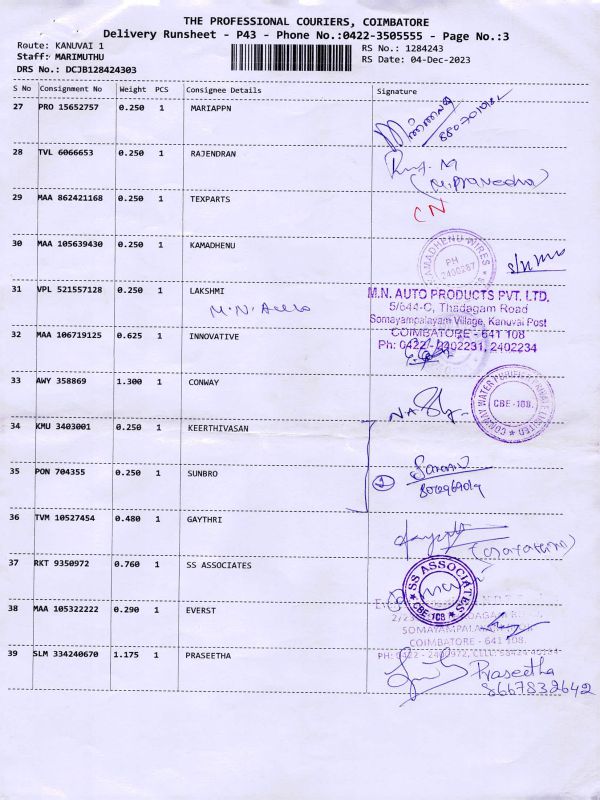 THE PROFESSIONAL COURIERS, COIMBATORE
Delivery Runsheet - P43 - Phone No.:0422-3505555 - Page No.:3
Route: KANUVAI 1
Staff: MARIMUTHU
DRS No.: DCJB128424303
RS No.: 1284243
RS Date: 04-Dec-2023
S No Consignment No Weight PCS Consignee Details Signature
27 PRO 15652757 0.250 1 MARIAPPN
28 TVL 6066653 0.250 1 RAJENDRAN
29 MAA 862421168 0.250 1 TEXPARTS
CN
30 MAA 105639430 0.250 1 KAMADHENU
PH
2400287
31 VPL 521557128 0.250 1 LAKSHMI
M.N. AUTO PRODUCTS PVT. LTD.
5/644-C, Thadagam Road
Somayampalayam Village, Kanuvai Post
COIMBATORE - 641 108
Ph: 0422 - 2402231, 2402234
32 MAA 106719125 0.625 1 INNOVATIVE
33 AWY 358869 1.300 1 CONWAY
CONWAY WATER PURIFI
CBE-108.
34 KMU 3403001 0.250 1 KEERTHIVASAN
35 PON 704355 0.250 1 SUNBRO
36 TVM 10527454 0.480 1 GAYTHRI
37 RKT 9350972 0.760 1 SS ASSOCIATES
SS ASSOCIATES
CBE-108
38 MAA 105322222 0.290 1 EVERST
COIMBATORE - 641 108.
39 SLM 334240670 1.175 1 PRASEETHA
Praseetha
8667832642